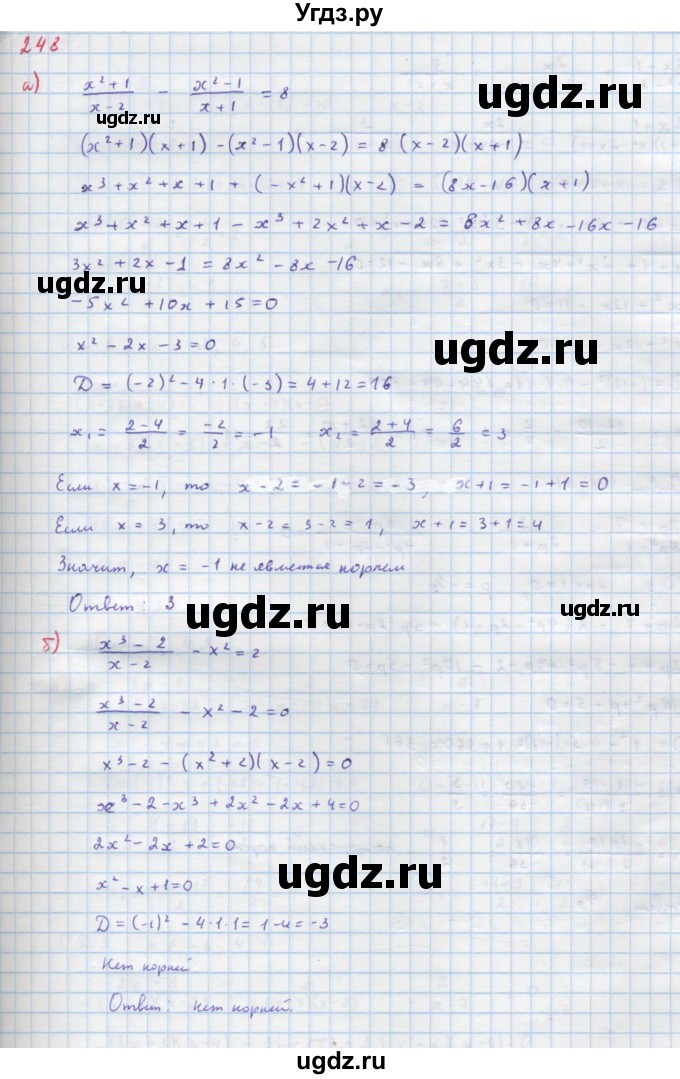 Угдз.ру
248
а) (x²+1)/(x-2) - (x²-1)/(x+1) = 8
ugdz.ru
ugdz.ru
(x²+1)(x+1) - (x²-1)(x-2) = 8 (x-2)(x+1)
x³+x²+x+1 + (-x²+1)(x-2) = (8x-16)(x+1)
x³+x²+x+1 - x³+2x²+x-2 = 8x²+8x-16x-16
3x²+2x-1 = 8x²-8x-16
ugdz.ru
-5x²+10x+15=0
x²-2x-3=0
ugdz.ru
D = (-2)²-4·1·(-3) = 4+12=16
x₁ = (2-4)/2 = -2/2 = -1    x₂ = (2+4)/2 = 6/2 = 3
Если x=-1, то x-2 = -1-2 = -3, x+1 = -1+1 = 0
Если x = 3, то x-2 = 3-2 = 1, x+1 = 3+1 = 4
Значит, x = -1 не является корнем
Ответ: 3
ugdz.ru
ugdz.ru
б) (x³-2)/(x-2) - x² = 2
(x³-2)/(x-2) - x²-2=0
ugdz.ru
x³-2 - (x²+2)(x-2)=0
x³-2-x³+2x²-2x+4=0
2x²-2x+2=0
ugdz.ru
x²-x+1=0
D = (-1)²-4·1·1 = 1-4 = -3
Нет корней
Ответ: нет корней.
ugdz.ru
ugdz.ru